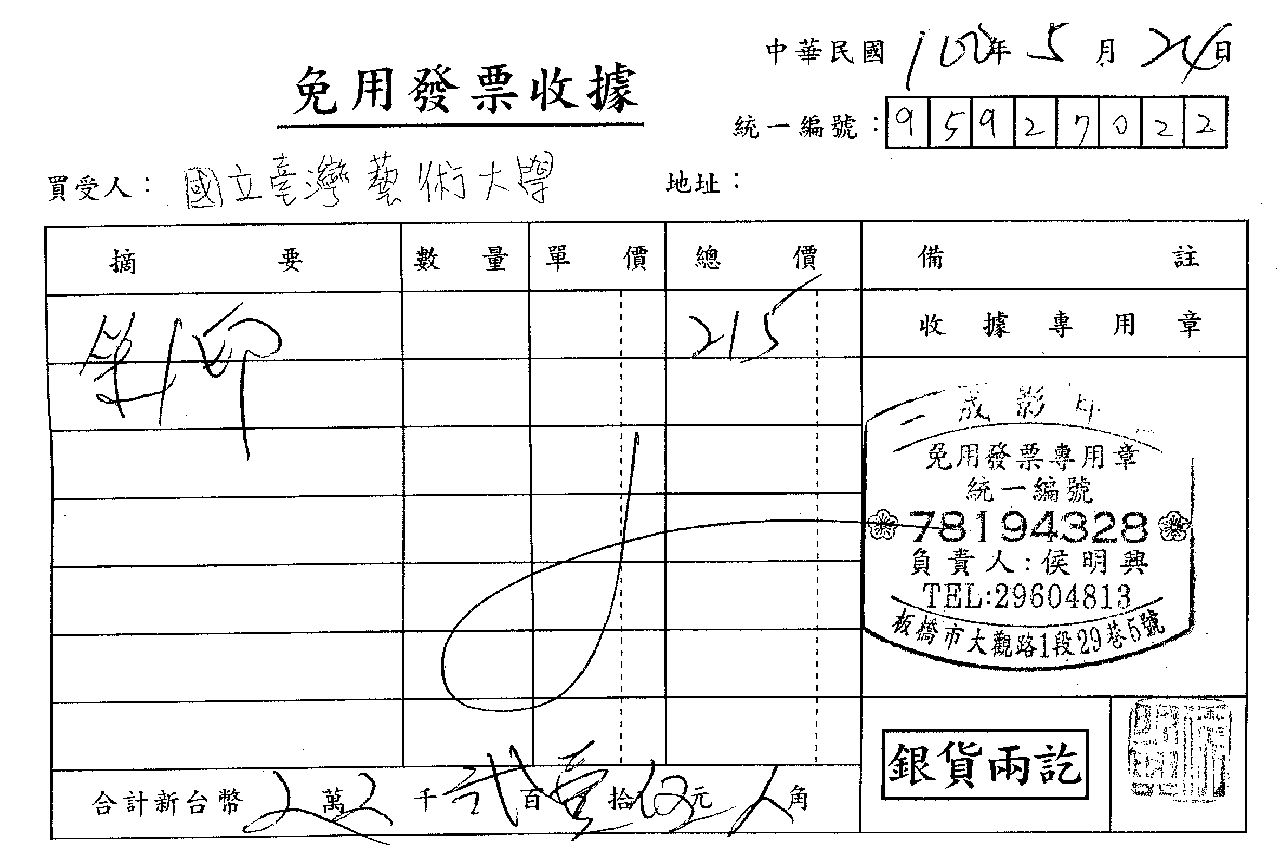 中華民國100年5月24日
免用發票收據
統一編號：95927022
買受人：國立臺灣藝術大學 地址：
摘要 數量 單價 總價 備註
影印 215 收據專用章
二晟影印
免用發票專用章
統一編號
78194328
負責人:侯明興
TEL:29604813
板橋市大觀路1段29巷5號
銀貨兩訖
合計新台幣 萬 千 貳百壹拾伍元 角